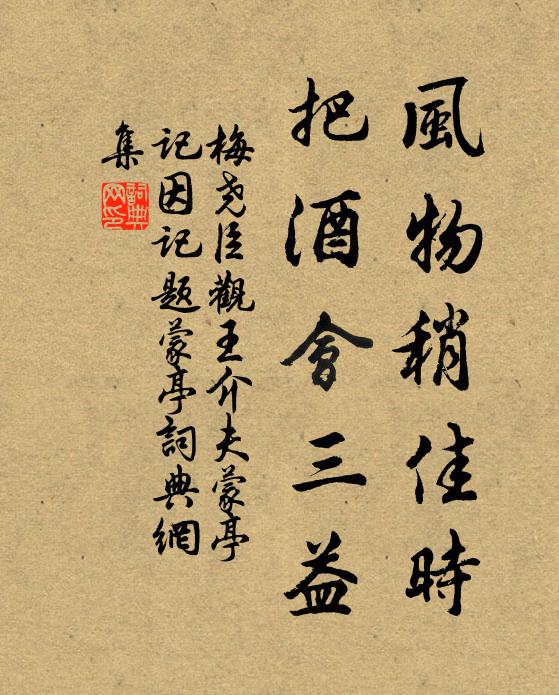 風物稍佳時
把酒會三益
梅堯臣觀王介夫蒙亭
記因記題蒙亭詞典網
集
詞典
网印